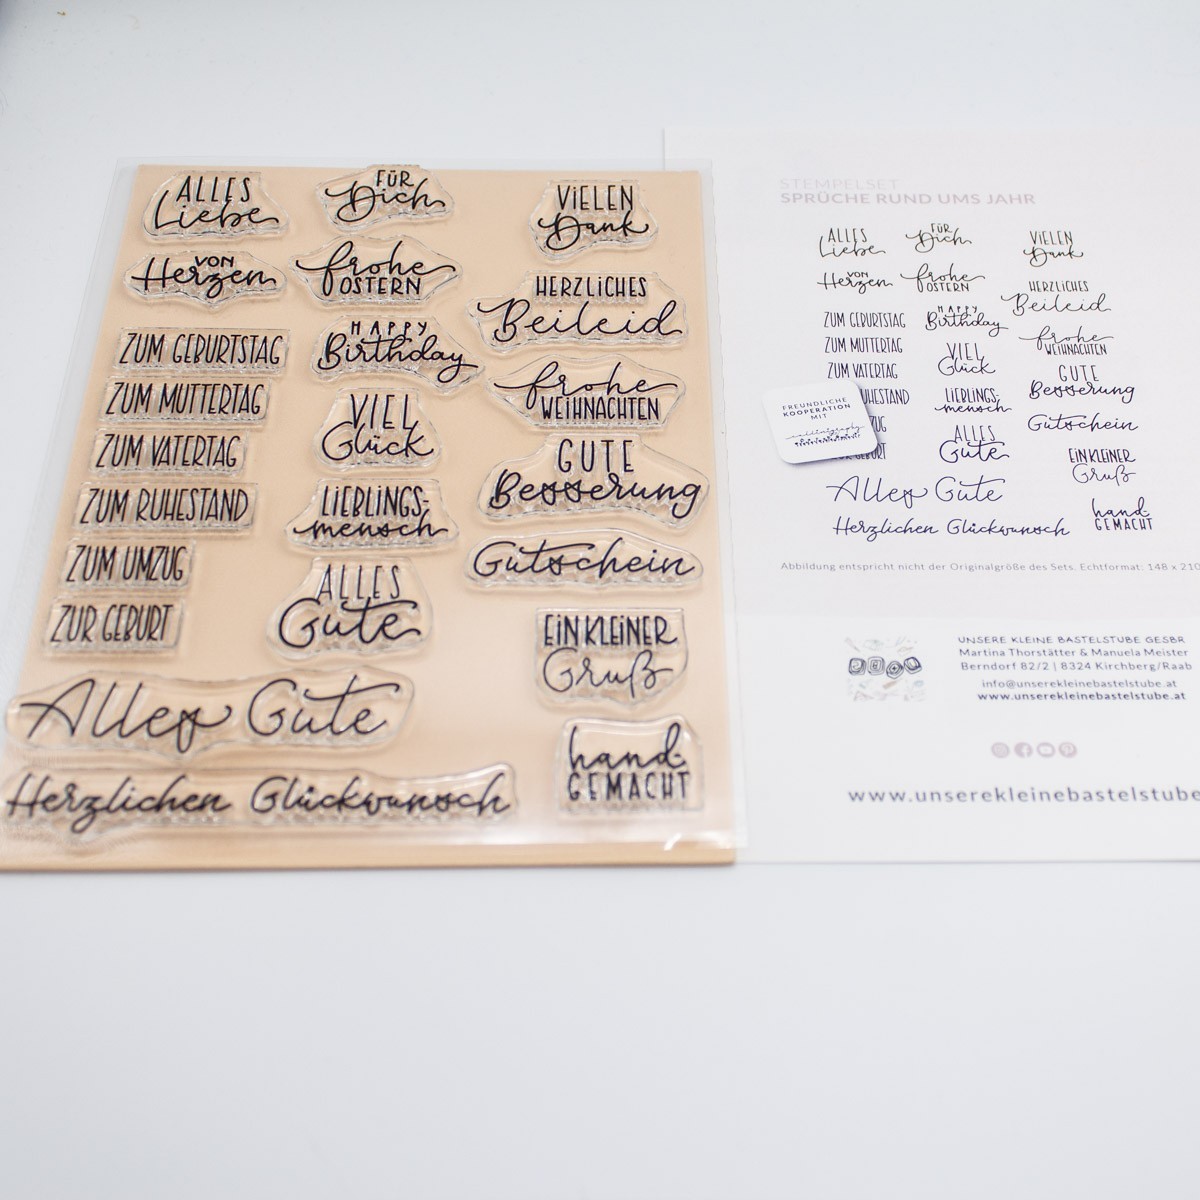 ALLES
Liebe
FÜR
Dich
VIELEN
Dank
VON
Herzen
frohe
OSTERN
HERZLICHES
Beileid
ZUM GEBURTSTAG
HAPPY
Birthday
frohe
WEIHNACHTEN
ZUM MUTTERTAG
VIEL
Glück
ZUM VATERTAG
GUTE
Besserung
ZUM RUHESTAND
LIEBLINGS-
mensch
Gutschein
ZUM UMZUG
ALLES
Gute
ZUR GEBURT
EIN KLEINER
Gruß
Alles Gute
hand-
GEMACHT
Herzlichen Glückwunsch
STEMPELSET
SPRÜCHE RUND UMS JAHR
ALLES
Liebe
FÜR
Dich
VIELEN
Dank
VON
Herzen
frohe
OSTERN
HERZLICHES
Beileid
ZUM GEBURTSTAG
HAPPY
Birthday
frohe
WEIHNACHTEN
ZUM MUTTERTAG
VIEL
Glück
ZUM VATERTAG
GUTE
Besserung
UHESTAND
LIEBLINGS-
mensch
Gutschein
ZUG
ALLES
Gute
EIN KLEINER
Gruß
GEBURT
Alles Gute
hand-
GEMACHT
Herzlichen Glückwunsch
FREUNDLICHE
KOOPERATION
MIT
Abbildung entspricht nicht der Originalgröße des Sets. Echtformat: 148 x 210
UNSERE KLEINE BASTELSTUBE GESBR
Martina Thorstätter & Manuela Meister
Berndorf 82/2 | 8324 Kirchberg/Raab
info@unserekleinebastelstube.at
www.unserekleinebastelstube.at
www.unserekleinebastelstube